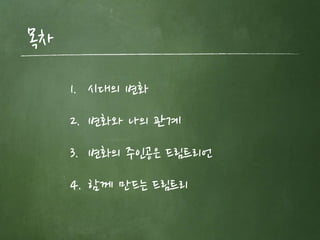 목차
1. 시대의 변화
2. 변화와 나의 관계
3. 변화의 주인공은 드림트리언
4. 함께 만드는 드림트리